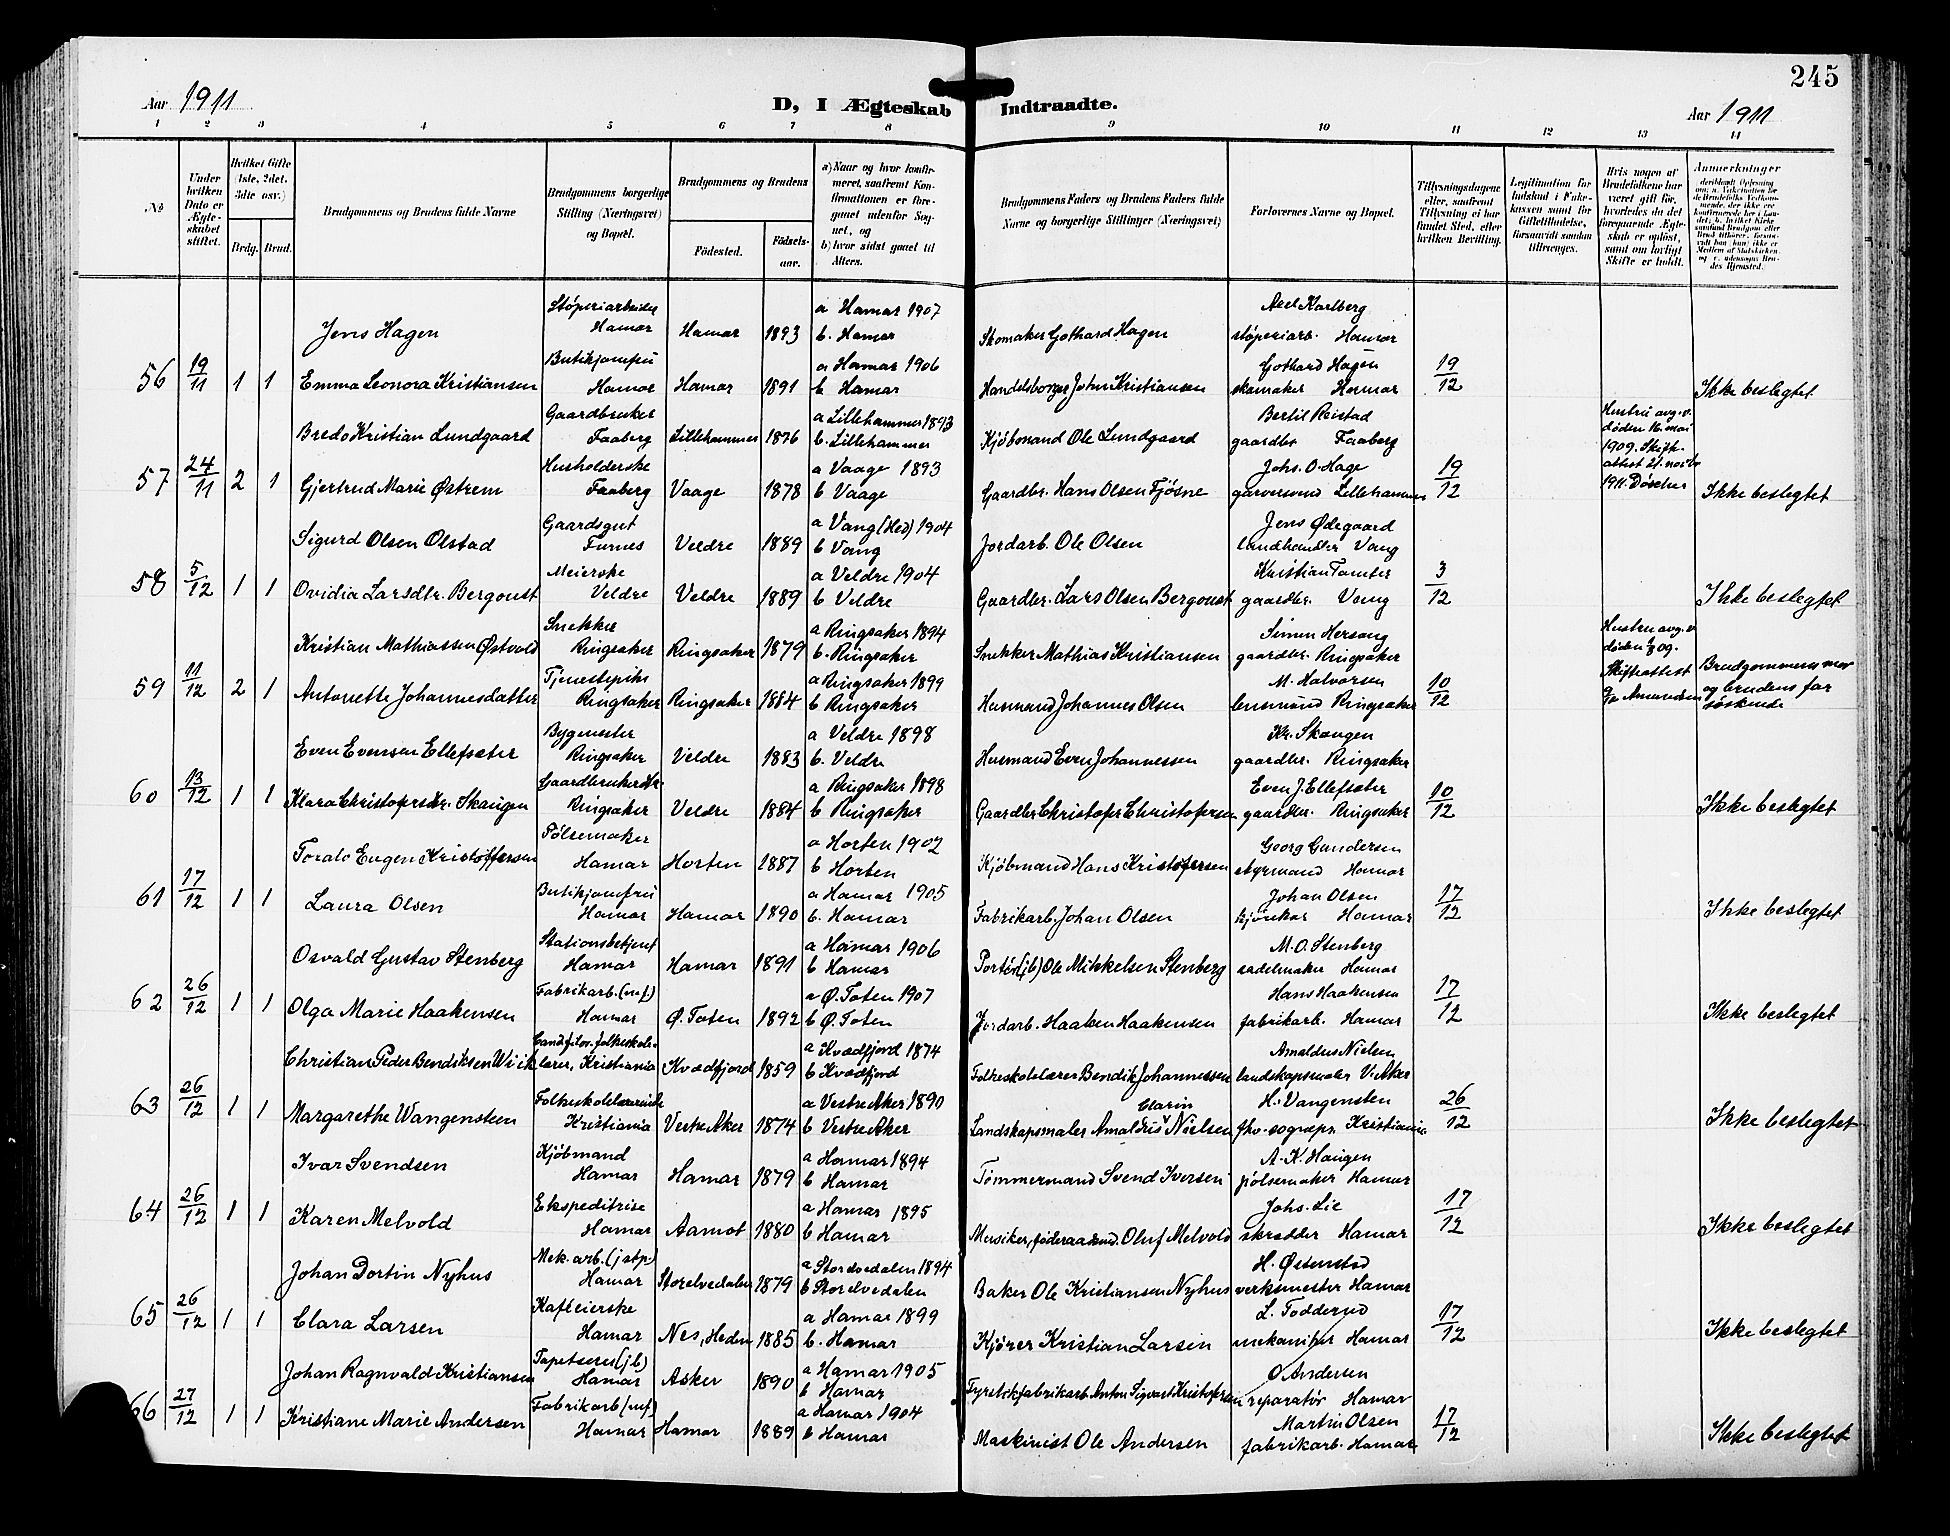 245
Aar 1911
D, I Ægteskab Indtraadte.
Aar 1911
1 2 3 4 5 6 7 8 9 10 11 12 13 14
No
Under hvilken Dato er Ægteskabet stiftet.
Hvilket Gifte (1ste, 2det, 3die osv.)
Brdg. Brud.
Brudgommens og Brudens fulde Navne
Brudgommens borgerlige Stilling (Næringsvei) og Bopæl.
Brudgommens og Brudens
Födested.
Födselsaar.
a) Naar og hvor konfirmeret, saafremt Konfirmationen er foregaaet udenfor Sognet, og
b) hvor sidst gaaet til Alters.
Brudgommens Faders og Brudens Faders fulde Navne og borgerlige Stillinger (Næringsvei)
Forlovernes Navne og Bopæl.
Tillysningsdagene eller, saafremt Tillysning ei har fundet Sted, efter hvilken Bevilling.
Legitimation for Indskud i Enkekassen samt for Giftetilladelse, forsaavidt saadan tiltrænges.
Hvis nogen af Brudefolkene har været gift för, hvorledes da det foregaaende Ægteskab er oplöst, samt om lovligt Skifte er holdt.
Anmerkninger
Jens Hagen Støperiarbeider Hamar Hamar 1893 a Hamar 1907 b. Hamar Skomaker Gothard Hagen Axel Karlberg støperiarb. Hamar
56 19/11 1 1 Emma Leonora Kristiansen Butikjomfru Hamar Hamar 1891 a Hamar 1906 b Hamar Handelsborger John Kristiansen Gothard Hagen skomaker Hamar 19/12 Ikke beslegtet
Bredo Kristian Lundgaard Gaardbruker Faaberg Lillehammer 1876 a Lillehammer 1893 b. Lillehammer Kjøbmand Ole Lundgaard Bertil Reistad gaardbr. Faaberg Hustru avg. v. døden 16. mai 1909. Skifteattest 21. novbr 1911.
57 24/11 2 1 Gjertrud Marie Østrem Husholderske Faaberg Vaage 1878 a Vaage 1893 b Vaage Gaardbr. Hans Olsen Fjøsne Johs. O. Hage garversvend Lillehammer 19/12 Ikke beslegtet
Sigurd Olsen Olstad Gaardsgut Furnes Veldre 1889 a Vang (Hed) 1904 b Vang Jordarb. Ole Olsen Jens Ødegaard landhandler Vang
58 5/12 1 1 Ovidia Larsdtr. Bergoust Meierske Veldre Veldre 1889 a Veldre 1904 b Veldre Gaardbr. Lars Olsen Bergoust Kristian Tomter gaardbr. Vang 3/12 Ikke beslegtet
Kristian Mathiassen Østvold Snekker Ringsaker Ringsaker 1879 a Ringsaker 1894 b. Ringsaker Snekker Mathias Kristiansen Simen Hersoug gaardbr. Ringsaker Hustru avg. v. døden
59 11/12 2 1 Antonette Johannesdatter Tjenestepike Ringsaker Ringsaker 1884 a Ringsaker 1899 b Ringsaker Husmand Johannes Olsen M. Halvorsen lensmand Ringsaker 10/12 Skifteattest Amundsen Brudgommens mor og brudens far søskende
Even Evensen Ellefsæter Bygmester Ringsaker Veldre 1883 a Veldre 1898 b. Veldre Husmand Even Johannessen Kr. Skaugen gaardbr. Ringsaker
60 13/12 1 1 Klara Christofersdtr. Skaugen Gaardbrukerdtr. Ringsaker Veldre 1884 a Ringsaker 1898 b Ringsaker Gaardbr Christofer Christofersen Even J. Ellefsæter gaardbr. Ringsaker 10/12 Ikke beslegtet
Toralv Eugen Kristoffersen Pølsemaker Hamar Horten 1887 a Horten 1902 b Horten Kjøbmand Hans Kristofersen Georg Gundersen styrmand Hamar
61 17/12 1 1 Laura Olsen Butikjomfru Hamar Hamar 1890 a Hamar 1905 b. Hamar Fabrikarb. Johan Olsen Johan Olsen Hamar 17/12 Ikke beslegtet
Osvald Gustav Stenberg Stationsbetjent Hamar Hamar 1891 a Hamar 1906 b Hamar Portør (jb) Ole Mikkelsen Stenberg M. O. Stenberg sadelmaker Hamar
62 26/12 1 1 Olga Marie Haakensen Fabrikarb. Hamar Ø. Toten 1892 a Ø. Toten 1907 b Ø. Toten Jordarb. Haaken Haakensen Hans Haakensen fabrikarb. Hamar 17/12 Ikke beslegtet
Christian Peder Bendiksen Wiik Cand. filos. folkeskolelærer, Kristiania Kvædfjord 1859 a Kvædfjord 1874 b Kvædfjord Folkeskolelærer Bendik Johannessen Amaldus Nielsen landskapsmaler V. Aker
63 26/12 1 1 Margarethe Wangensteen Folkeskolelærerinde Kristiania Vestre Aker 1874 a Vestre Aker 1890 b Vestre Aker Landskapsmaler Amaldus Clarin Nielsen H. Vangensten fhv. sogrepr. Kristiania 26/12 Ikke beslegtet
Ivar Svendsen Kjøbmand Hamar Hamar 1879 a Hamar 1894 b Hamar Tømmermand Svend Iversen A. K. Haugen pølsemaker Hamar
64 26/12 1 1 Karen Melvold Ekspeditrise Hamar Aamot 1880 a Hamar 1895 b Hamar Musiker, føderaadsmd. Oluf Melvold Johs. Lie skrædder Hamar 17/12 Ikke beslegtet
Johan Dortin Nyhus Mek. arb. Hamar Storelvedalen 1879 a Storelvedalen 1894 b Storelvedalen Baker Ole Kristiansen Nyhus H. Østenstad verksmester Hamar
65 26/12 1 1 Clara Larsen Kafeeierske Hamar Nes, Hedm 1885 a Hamar 1899 b. Hamar Kjører Kristian Larsen L. Todderud mekaniker Hamar 17/12 Ikke beslegtet
Johan Ragnvald Kristiansen Tapetserer (jb) Hamar Asker 1890 a Hamar 1905 b Hamar Fyrstikfabrikarb. Anton Sigvart Kristofersen O Andersen reparatør Hamar
66 27/12 1 1 Kristiane Marie Andersen Fabrikarb Hamar Hamar 1889 a Hamar 1904 b Hamar Maskinist Ole Andersen Martin Olsen fabrikarb. Hamar 17/12 Ikke beslegtet